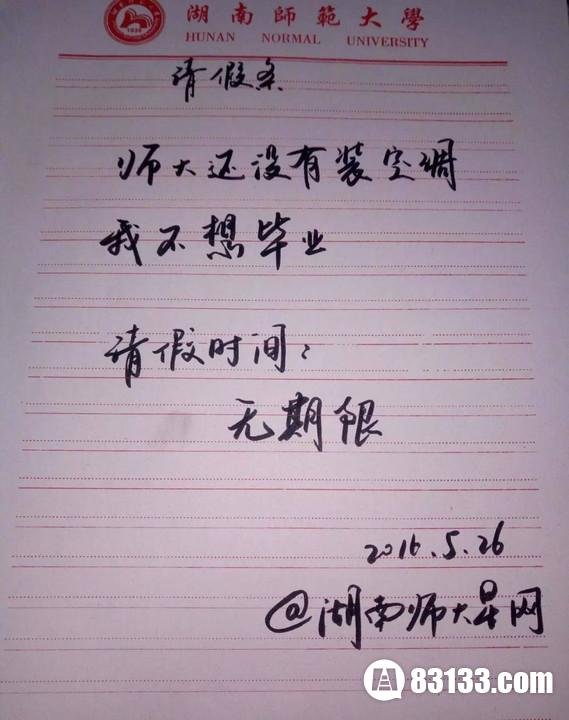 湖南師範大學
HUNAN NORMAL UNIVERSITY
1938
请假条
师大还没有装空调
我不想毕业
请假时间：
无期限
2016.5.26
@湖南师大星网
83133.com